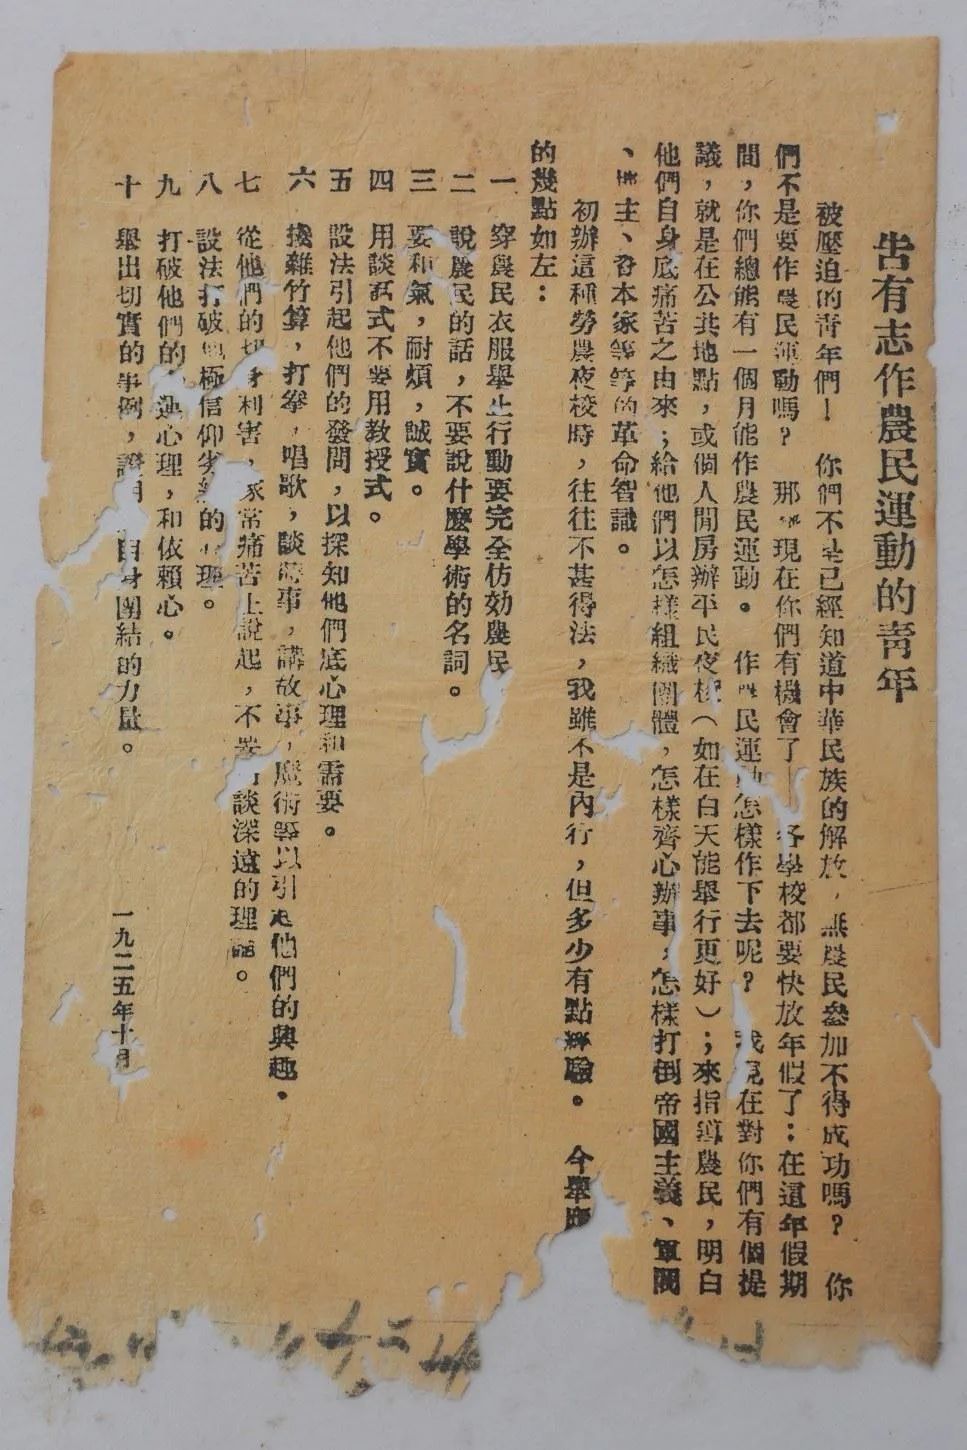 告有志作農民運動的青年
被壓迫的青年們！　你們不是已經知道中華民族的解放，無農民參加不得成功嗎？　你
們不是要作農民運動嗎？　那　現在你們有機會了　各學校都要快放年假了：在這年假期
間，你們總能有一個月能作農民運動。　作農民運動怎樣作下去呢？　我現在對你們有個提
議，就是在公共地點，或個人閒房辦平民夜校（如在白天能舉行更好）；來指導農民，明白
他們自身底痛苦之由來；給他們以怎樣組織團體，怎樣齊心辦事，怎樣打倒帝國主義、軍閥
、地主、　本家等等的革命智識。
初辦這種勞農夜校時，往往不甚得法，我雖不是內行，但多少有點經驗。　今舉
的幾點如左：
一　穿農民衣服舉止行動要完全仿効農民
二　說農民的話，不要說什麼學術的名詞。
三　要和氣，耐煩，誠實。
四　用談話式不要用教授式。
五　設法引起他們的發問，以探知他們底心理和需要。
六　擙雜竹算，打拳，唱歌，談　事，講故事，魔術等以引起他們的興趣。
七　從他們的切身利害，家常痛苦上說起，不要　談深遠的理論。
八　設法打破　極信仰劣紳的心理。
九　打破他們的　心理，和依賴心。
十　舉出切實的事例，證明　自身團結的力量。
一九二五年十月